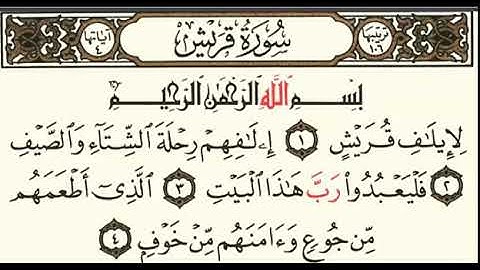 ترتيبها ١٠٦ سُورَةُ قُرَيْشٍ آياتها ٤
بِسْمِ اللَّهِ الرَّحْمَٰنِ الرَّحِيمِ
لِإِيلَٰفِ قُرَيْشٍ ١ إِۦلَٰفِهِمْ رِحْلَةَ الشِّتَآءِ وَالصَّيْفِ
٢ فَلْيَعْبُدُوا۟ رَبَّ هَٰذَا الْبَيْتِ ٣ الَّذِىٓ أَطْعَمَهُم
مِّن جُوعٍ وَءَامَنَهُم مِّنْ خَوْفٍ ٤